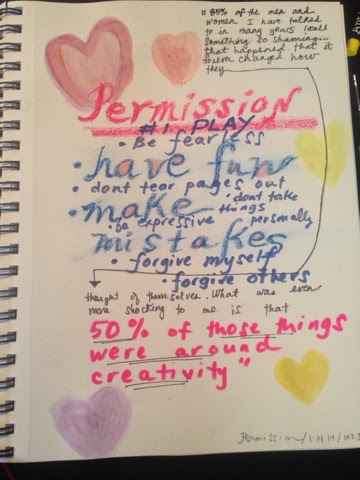 "85% of the men and
women I have talked
to in many years recall
something so shaming...
that happened that it
forever changed how
they
Permission
#1 PLAY
• Be fearless
• have fun
• dont tear pages out
• dont take
things
personally
• make
mistakes
• be expressive
• forgive myself
• forgive others
thought of themselves. What was even
more shocking to me is that
50% of those things
were around
creativity"
Permission/1.14.14/WK1